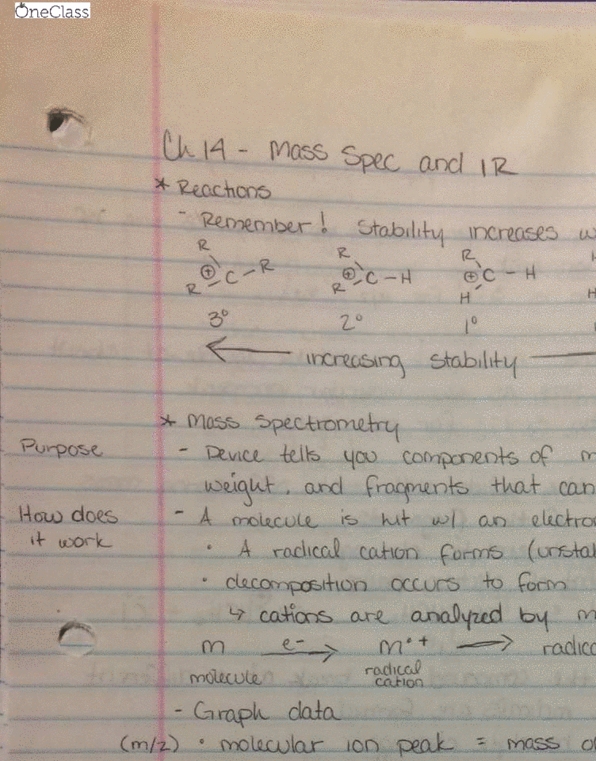 OneClass
Ch 14 - Mass Spec and IR
* Reactions
- Remember! Stability increases w
R R R H
⊕C-R ⊕C-H ⊕C-H
R R H H
3° 2° 1°
← increasing stability
* Mass Spectrometry
Purpose - Device tells you components of m
weight, and fragments that can
How does - A molecule is hit w/ an electro
it work • A radical cation forms (unstab
• decomposition occurs to form
↳ cations are analyzed by m
m e⁻→ m•+ → radica
molecule radical cation
- Graph data
(m/z) • molecular ion peak = mass o